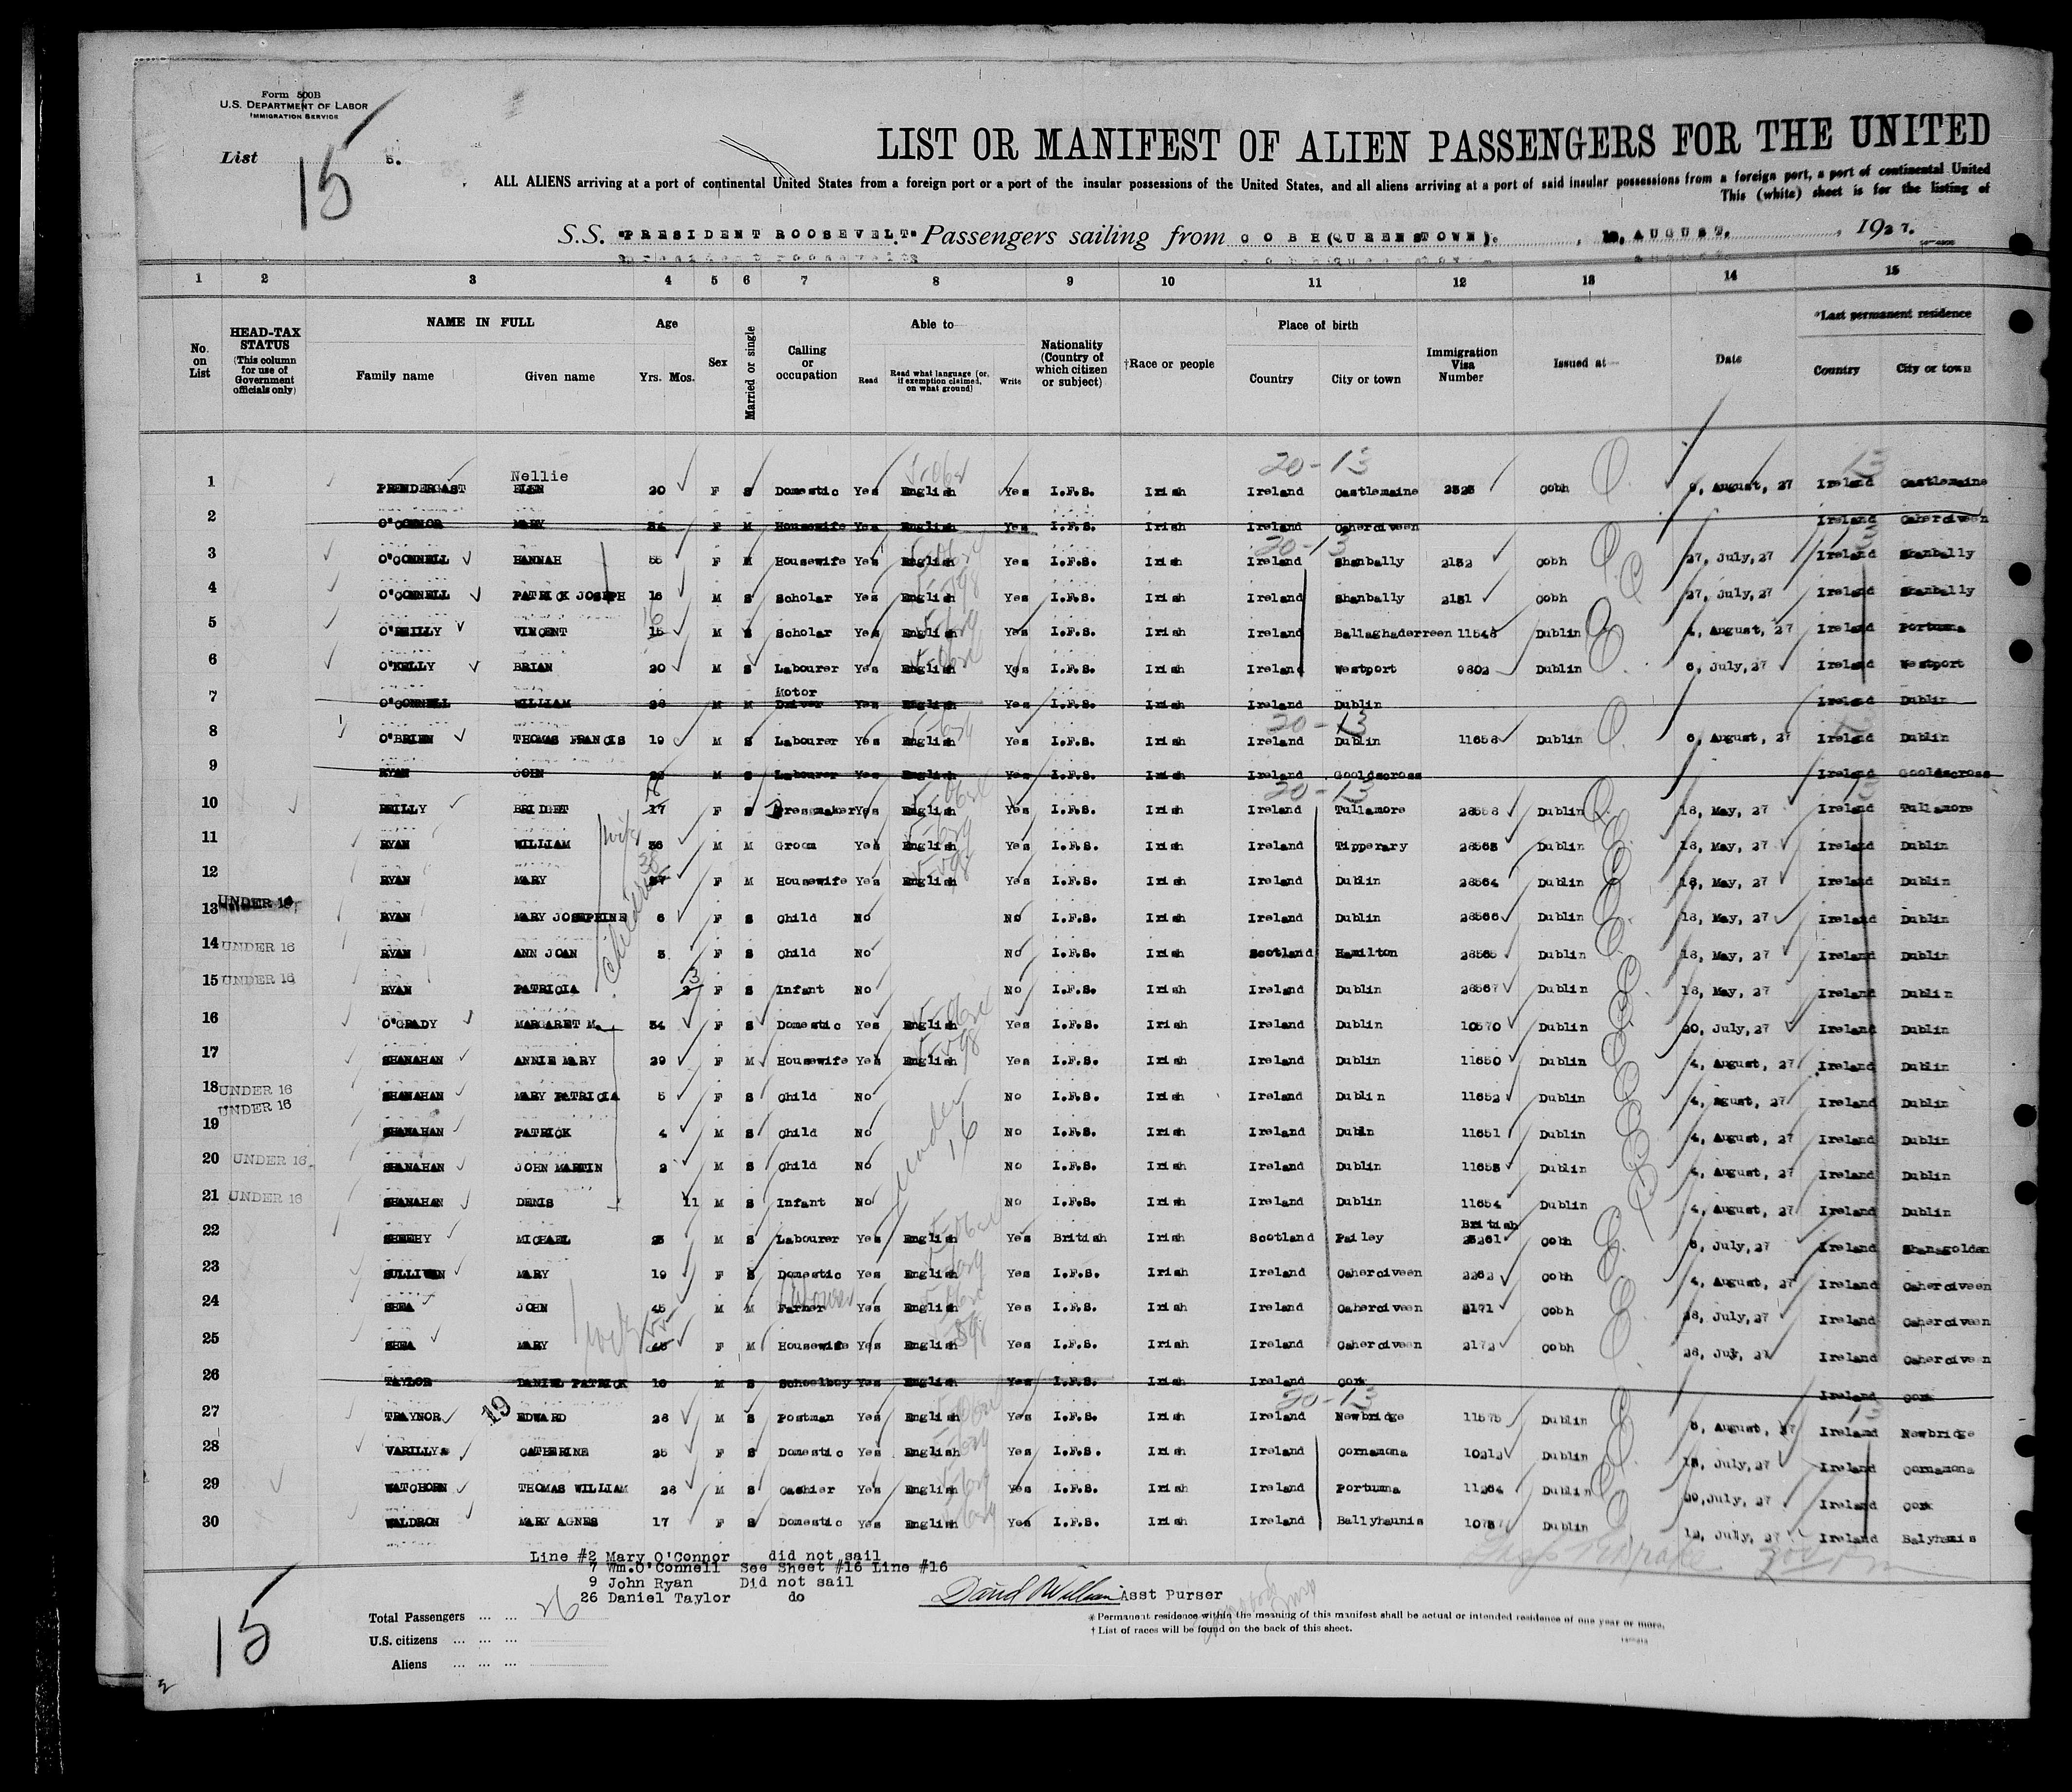 Form 500B
U.S. DEPARTMENT OF LABOR
IMMIGRATION SERVICE
List 15
LIST OR MANIFEST OF ALIEN PASSENGERS FOR THE UNITED
ALL ALIENS arriving at a port of continental United States from a foreign port or a port of the insular possessions of the United States, and all aliens arriving at a port of said insular possessions from a foreign port, a port of continental United
This (white) sheet is for the listing of
S.S. "PRESIDENT ROOSEVELT". Passengers sailing from COBH (QUEENSTOWN). , AUGUST. , 1927.
1 2 3 4 5 6 7 8 9 10 11 12 13 14 15
No. on List
HEAD-TAX STATUS (This column for use of Government officials only)
NAME IN FULL
Family name Given name
Age
Yrs. Mos.
Sex
Married or single
Calling or occupation
Able to
Read Read what language (or, if exemption claimed, on what ground) Write
Nationality (Country of which citizen or subject)
†Race or people
Place of birth
Country City or town
Immigration Visa Number
Issued at—
Date
*Last permanent residence
Country City or town
20-13 13
Nellie
1 PRENDERGAST ELEN 20 F S Domestic Yes English Yes I.F.S. Irish Ireland Castlemaine 2323 Cobh August, 27 Ireland Castlemaine
2 O'CONNOR MARY 34 F M Housewife Yes English Yes I.F.S. Irish Ireland Caherciveen Ireland Caherciveen
20-13
3 O'CONNELL HANNAH 55 F M Housewife Yes English Yes I.F.S. Irish Ireland Shanbally 2152 Cobh 27, July, 27 Ireland Shanbally
4 O'CONNELL PATRICK JOSEPH 16 M S Scholar Yes English Yes I.F.S. Irish Ireland Shanbally 2151 Cobh 27, July, 27 Ireland Shanbally
16
5 O'REILLY VINCENT 15 M S Scholar Yes English Yes I.F.S. Irish Ireland Ballaghaderreen 11548 Dublin 4, August, 27 Ireland Portumna
6 O'KELLY BRIAN 20 M S Labourer Yes English Yes I.F.S. Irish Ireland Westport 9802 Dublin 6, July, 27 Ireland Westport
Motor
7 O'CONNELL WILLIAM 28 M M Driver Yes English Yes I.F.S. Irish Ireland Dublin Ireland Dublin
20-13
8 O'BRIEN THOMAS FRANCIS 19 M S Labourer Yes English Yes I.F.S. Irish Ireland Dublin 11658 Dublin 6, August, 27 Ireland Dublin
9 RYAN JOHN M S Labourer Yes English Yes I.F.S. Irish Ireland Gooldscross Ireland Gooldscross
20-13
10 REILLY BRIDGET 17 F S Dressmaker Yes English Yes I.F.S. Irish Ireland Tullamore 28558 Dublin 18, May, 27 Ireland Tullamore
wife
11 RYAN WILLIAM 36 M M Groom Yes English Yes I.F.S. Irish Ireland Tipperary 28563 Dublin 18, May, 27 Ireland Dublin
38
12 RYAN MARY 37 F M Housewife Yes English Yes I.F.S. Irish Ireland Dublin 28564 Dublin 18, May, 27 Ireland Dublin
children
13 UNDER 16 RYAN MARY JOSEPHINE 6 F S Child No No I.F.S. Irish Ireland Dublin 28566 Dublin 18, May, 27 Ireland Dublin
14 UNDER 16 RYAN ANN JOAN 3 F S Child No No I.F.S. Irish Scotland Hamilton 28565 Dublin 18, May, 27 Ireland Dublin
3
15 UNDER 16 RYAN PATRICIA 2 F S Infant No No I.F.S. Irish Ireland Dublin 28567 Dublin 18, May, 27 Ireland Dublin
16 O'GRADY MARGARET M. 34 F S Domestic Yes English Yes I.F.S. Irish Ireland Dublin 10570 Dublin 20, July, 27 Ireland Dublin
17 SHANAHAN ANNIE MARY 29 F M Housewife Yes English Yes I.F.S. Irish Ireland Dublin 11650 Dublin 4, August, 27 Ireland Dublin
18 UNDER 16 SHANAHAN MARY PATRICIA 5 F S Child No No I.F.S. Irish Ireland Dublin 11652 Dublin 4, agust, 27 Ireland Dublin
UNDER 16
19 SHANAHAN PATRICK 4 M S Child No under 16 No I.F.S. Irish Ireland Dubln 11651 Dublin 4, August, 27 Ireland Dublin
20 UNDER 16 SHANAHAN JOHN MARTIN 2 M S Child No No I.F.S. Irish Ireland Dublin 11653 Dublin 4, August, 27 Ireland Dublin
21 UNDER 16 SHANAHAN DENIS 11 M S Infant No No I.F.S. Irish Ireland Dublin 11654 Dublin 4, August, 27 Ireland Dublin
British
22 SHEEHY MICHAEL 25 M S Labourer Yes English Yes British Irish Scotland Pailey 25261 Cobh 6, July, 27 Ireland Shanagolden
23 SULLIVAN MARY 19 F S Domestic Yes English Yes I.F.S. Irish Ireland Caherciveen 2262 Cobh 4, August, 27 Ireland Caherciveen
Labourer
24 SHEA JOHN 45 M M Farmer Yes English Yes I.F.S. Irish Ireland Caherciveen 2171 Cobh 28, July, 27 Ireland Caherciveen
wife
25 SHEA MARY 45 F M Housewife Yes English Yes I.F.S. Irish Ireland Caherciveen 2172 Cobh 28, July, 27 Ireland Caherciveen
26 TAYLOR DANIEL PATRICK 16 M S Schoolboy Yes English Yes I.F.S. Irish Ireland Cork Ireland Cork
19 20-13 13
27 TRAYNOR EDWARD 28 M S Postman Yes English Yes I.F.S. Irish Ireland Newbridge 11575 Dublin August, 27 Ireland Newbridge
28 VARILLY CATHERINE 25 F S Domestic Yes English Yes I.F.S. Irish Ireland Cornamona 10212 Dublin July, 27 Ireland Cornamona
29 WATCHORN THOMAS WILLIAM 28 M S Cashier Yes English Yes I.F.S. Irish Ireland Portumna 11264 Dublin July, 27 Ireland Cork
30 WALDRON MARY AGNES 17 F S Domestic Yes English Yes I.F.S. Irish Ireland Ballyhaunis Dublin July, 27 Ireland Balyhanis
Line #2 Mary O'Connor did not sail
7 Wm.O'Connell See Sheet #16 Line #16
9 John Ryan Did not sail
26 Daniel Taylor do
Asst Purser
Total Passengers ... ... 26
U.S. citizens ... ... ...
Aliens ... ... ...
* Permanent residence within the meaning of this manifest shall be actual or intended residence of one year or more.
† List of races will be found on the back of this sheet.
15
2